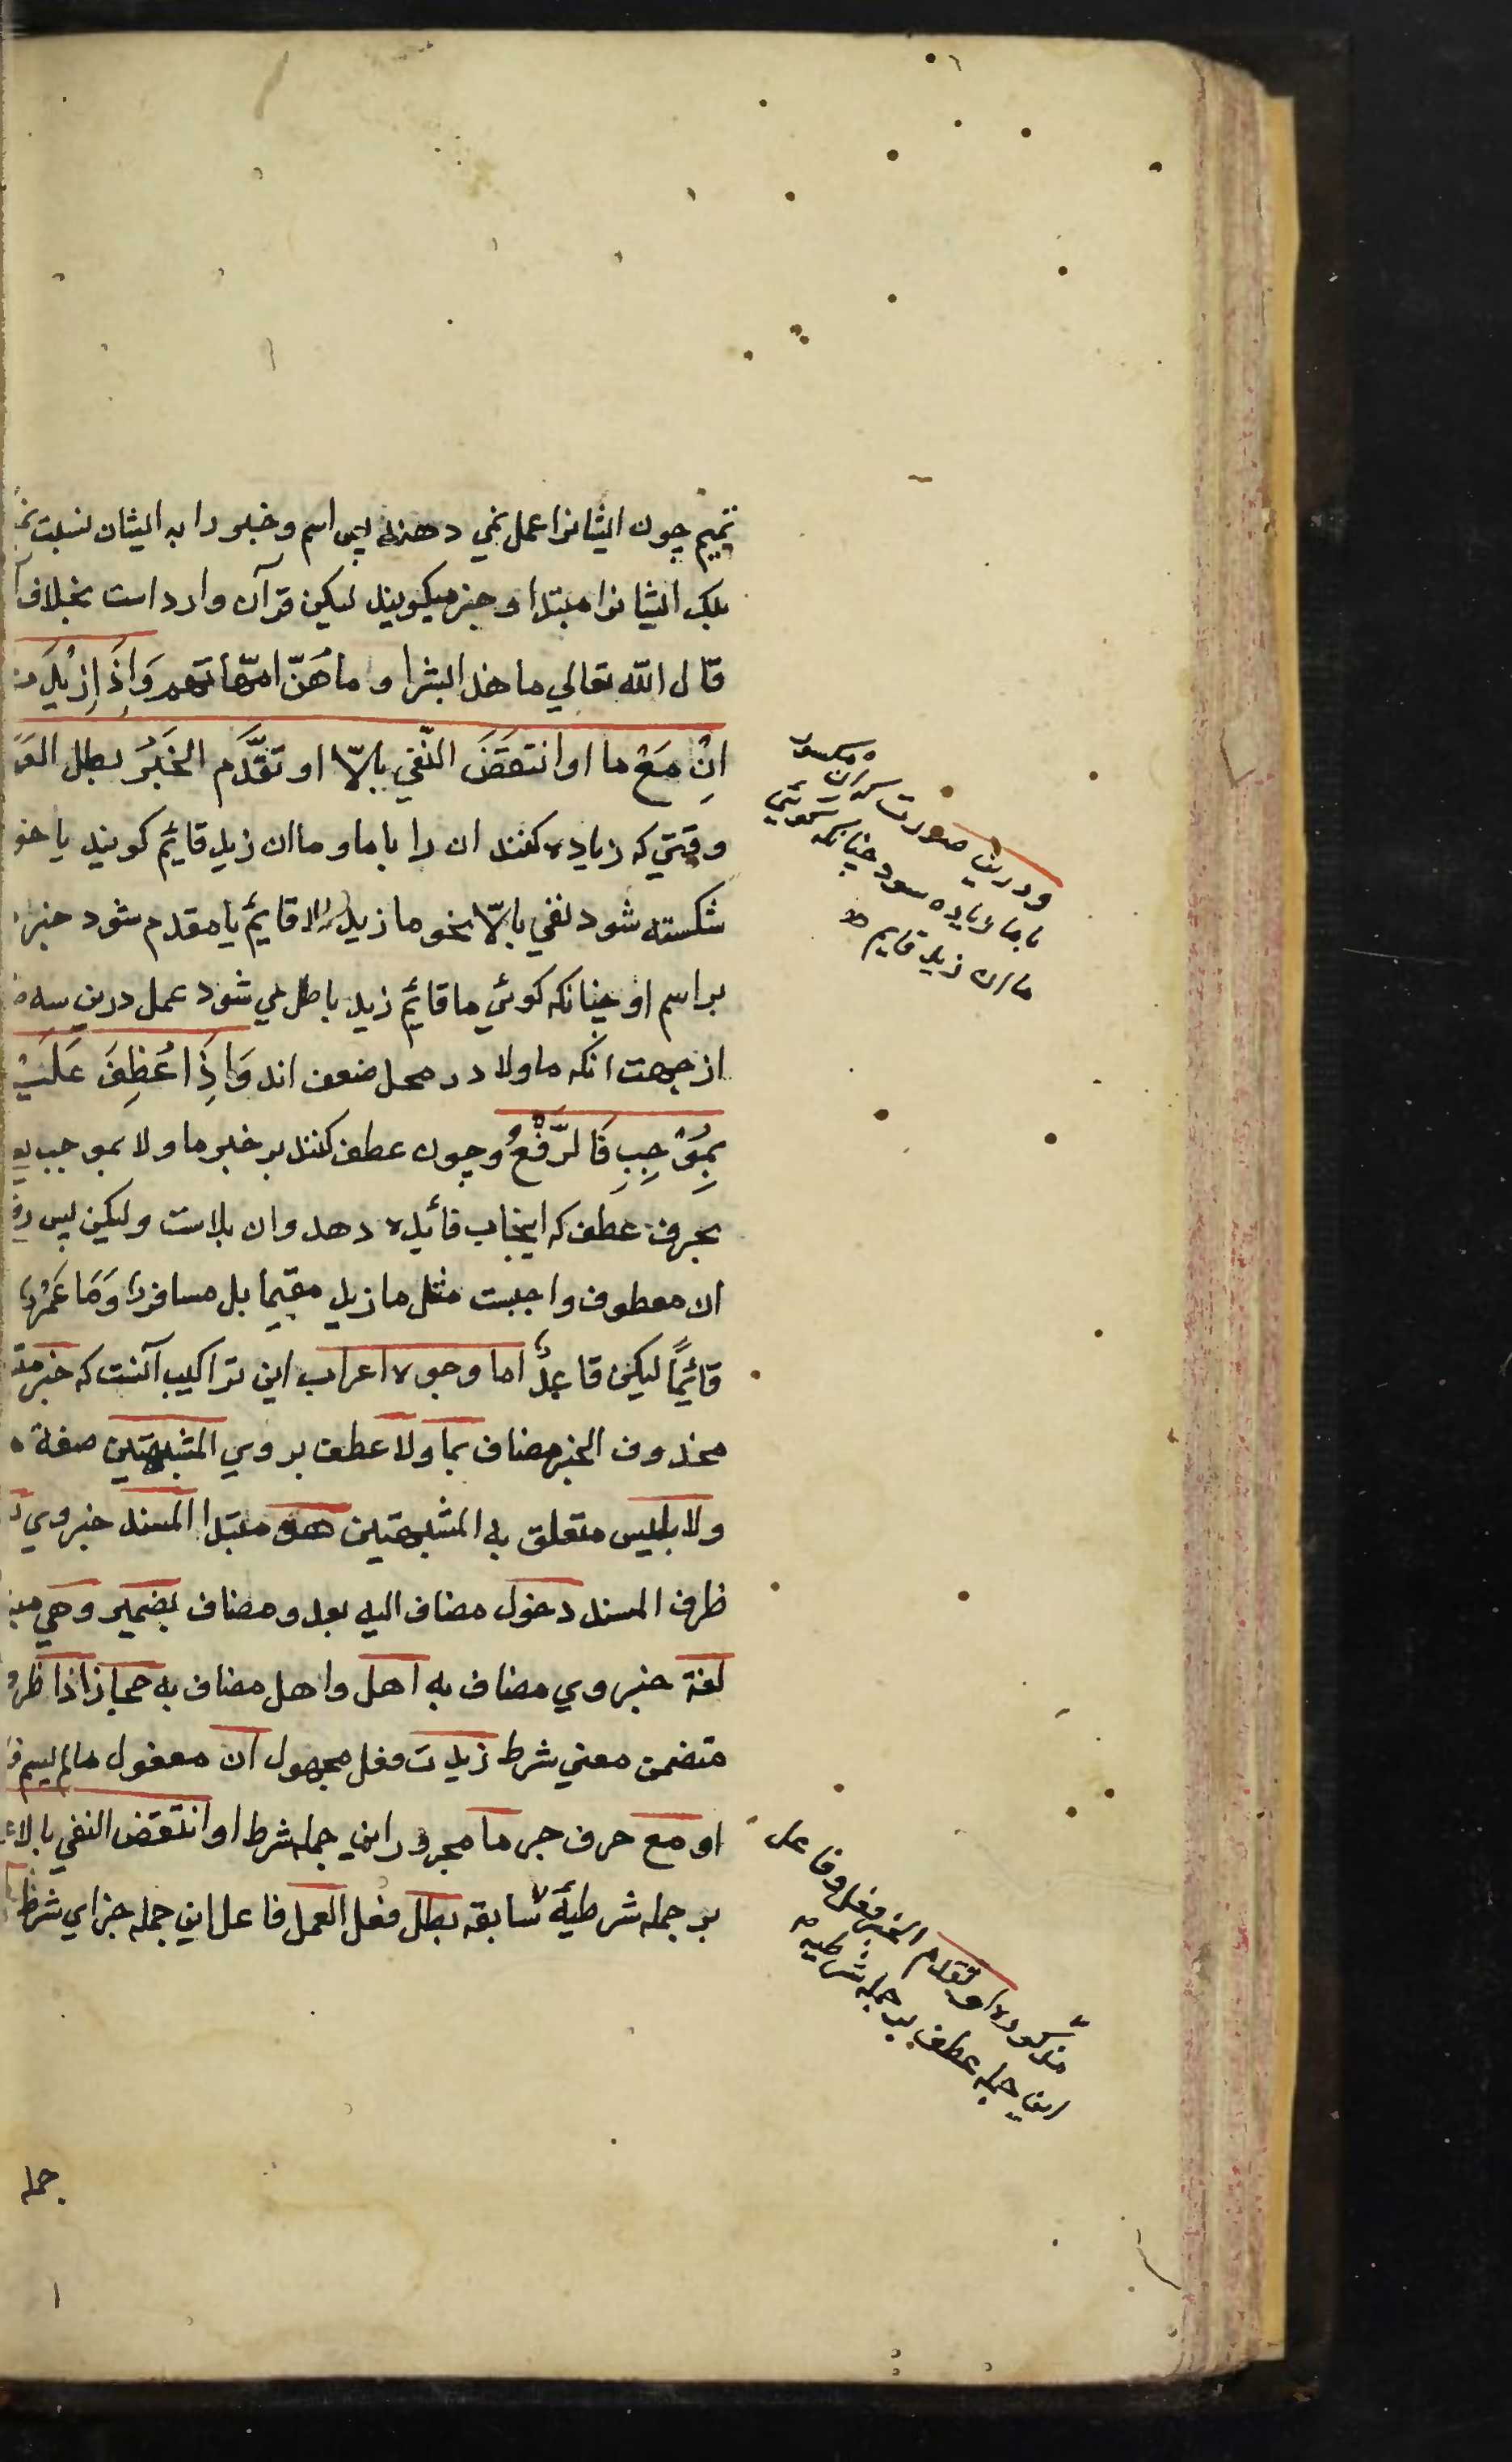 تميم چون ايشانرا عمل نمي دهند پس اسم و خبر را به ايشان نسبت
بلك ايشانرا مبتدا و خبر ميكويند ليكن قرآن وارد است بخلاف
قال الله تعالي ما هذا بشرا و ما هُنّ امّهاتهم وَاِذَا زِيْدَت
اِنْ مَعْ ما او انتَقَضَ النّفي بالّا او تقَدَّم الخَبَرُ بطل
وقتي كه زياده كنند ان را با ما و ما ان زيد قايم كويند يا
شكسته شود نفي بالّا نحو ما زيد الا قايمٌ يا مقدم شود خبر
بر اسم او چنانكه كوئي ما قائم زيد باطل مي شود عمل درين سه
از جهت انكه ما و لا در محل ضعف اند وَاِذَا عُطِفَ عَلَيْهِ
بِمُوْجِبٍ فَالرَّفْعُ وچون عطف كنند بر خبر ما و لا بموجب
بحرف عطف كه ايجاب فائده دهد و ان بلاست و ليكن پس
ان معطوف واجبست مثل ما زيد مقيماً بل مسافرٌ وَمَا عَمْرو
قائِمًا ليكن قاعِدٌ اما وجوه اعراب اين تراكيب آنست كه خبر
محذوف الخبر مضاف بما و لا عطف بر وي المشبهتين صفة
و لا بليس متعلق به المشبهتين هو مبتدا المسند خبر وي
ظرف المسند دخول مضاف اليه بعد و مضاف بضمير و هي
لغة خبر وي مضاف به اهل و اهل مضاف به حجاز اذا
متضمن معني شرط زيدت فعل مجهول ان مفعول ما لم يسم
او مع حرف جر ما مجرور اين جمله شرط او انتقض النفي بالا
بر جمله شرطيهٔ سابقه بطل فعل العمل فاعل اين جمله جزاي شرط
ودرين صورت كه ان مكسور
با ما زياده شود چنانكه كوئي
ما ان زيد قايم
مذكوره او تقدم الخبر فعل و فاعل
اين جمله عطف بر جمله شرطيه
جمله